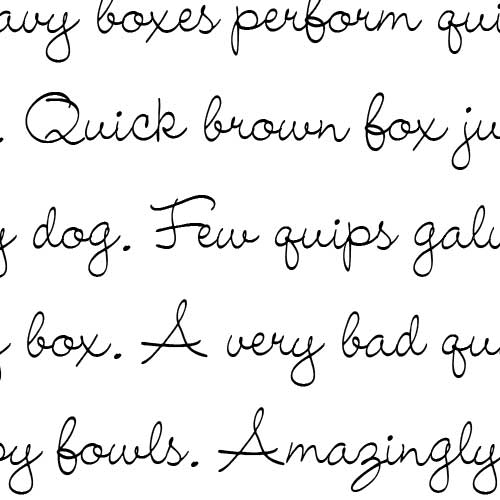 avy boxes perform qui
. Quick brown fox ju
y dog. Few quips galv
y box. A very bad qu
py fowls. Amazingly